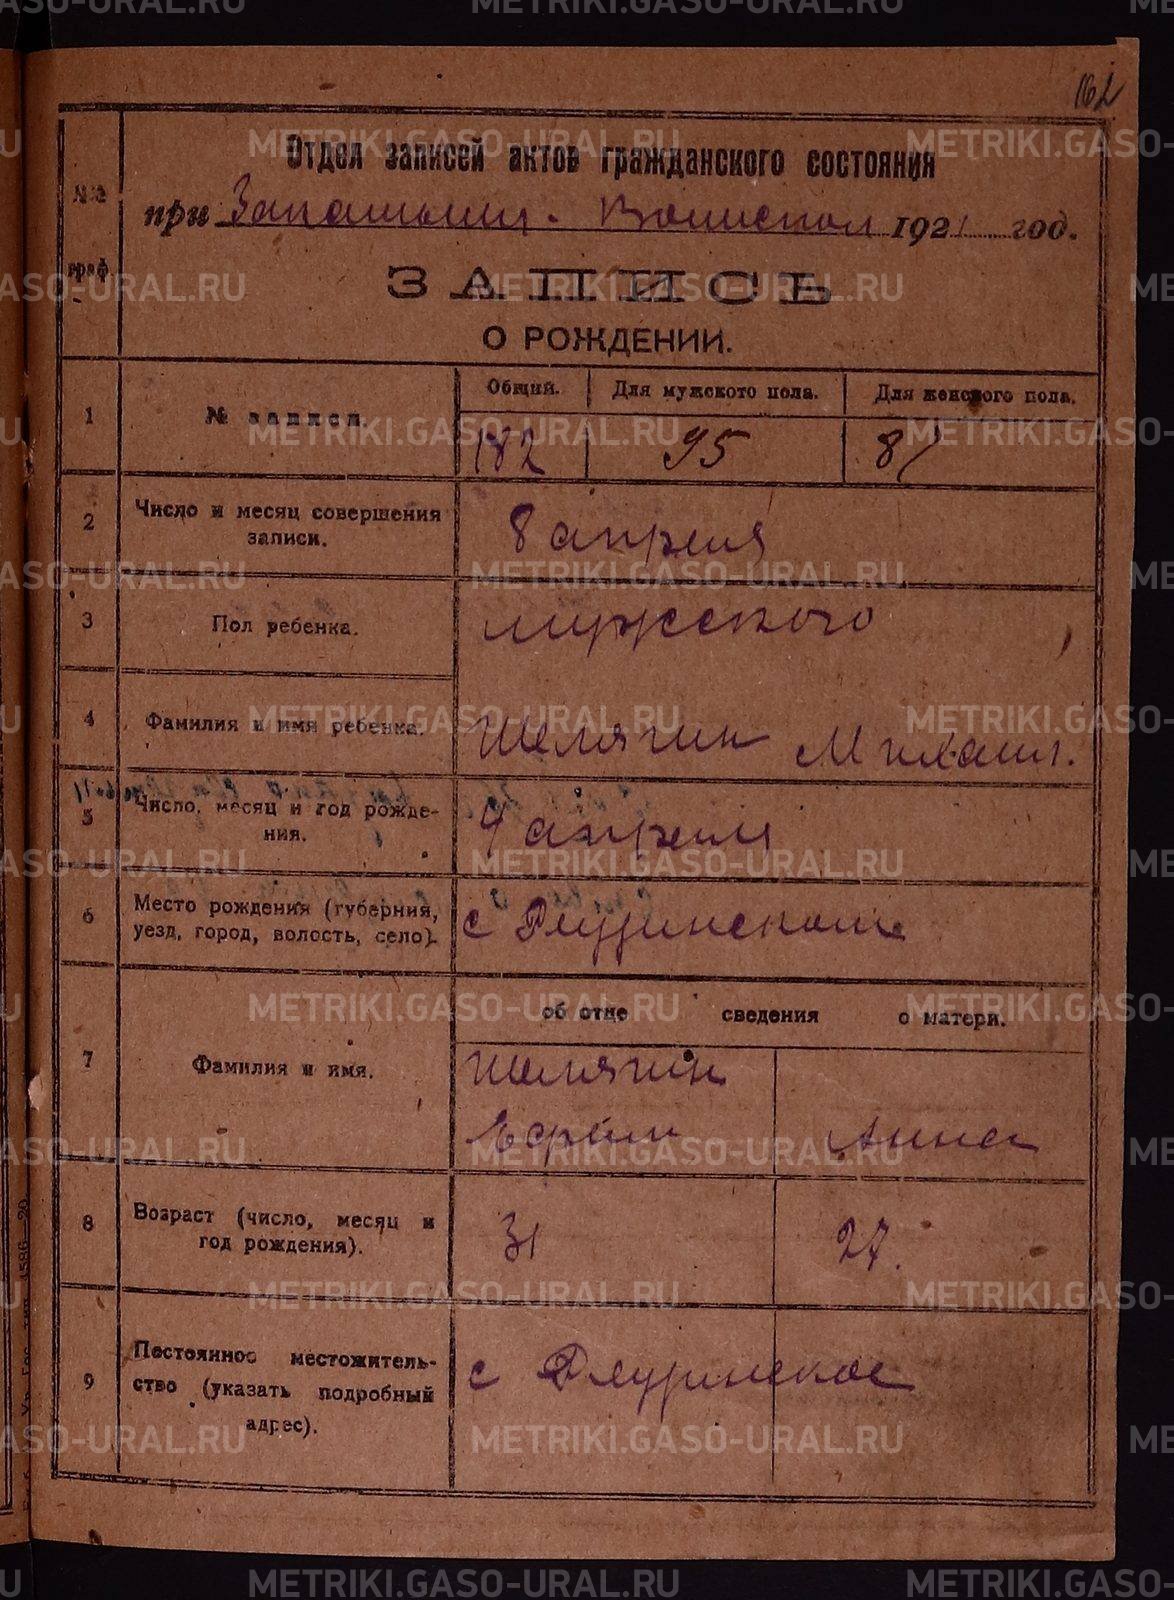 162
Отдел записей актов гражданского состояния
№№ граф.
при Волиспол 1921 год.
ЗАПИСЬ
О РОЖДЕНИИ.
1 № записи. Общий. Для мужского пола. Для женского пола.
182 95 87
2 Число и месяц совершения записи. 8 апреля
3 Пол ребенка. мужского
4 Фамилия и имя ребенка. Шелягин Михаил.
5 Число, месяц и год рождения. 4 апреля
6 Место рождения (губерния, уезд, город, волость, село). с
об отце сведения о матери.
7 Фамилия и имя. Шелягин
Ефим Анна
8 Возраст (число, месяц и год рождения). 31 27.
9 Постоянное местожительство (указать подробный адрес). с
METRIKI.GASO-URAL.RU